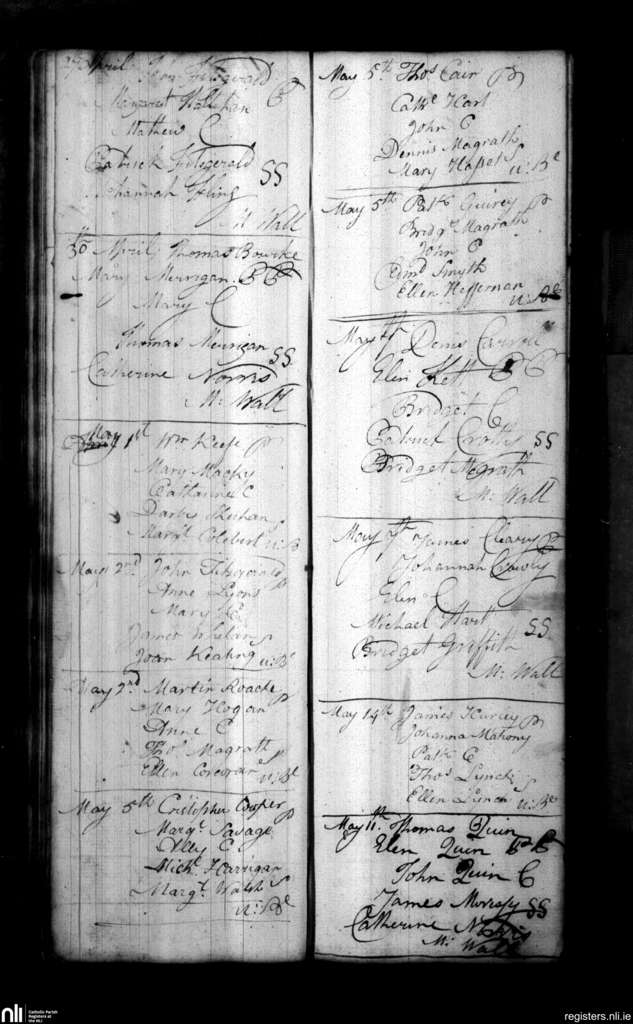 29 April John Fitzgerald
Margaret P
Mathew C
Patrick Fitzgerald SS
Johannah
Mr Wall
30th April Thomas Bourke
Mary Merrigan PP
Mary C
Thomas Merrigan SS
Catherine Norris
Mr Wall
May 1st Wm Keefe P
Mary Macky
Catharine C
Darby Sheehan S
Margt
May 2nd John P
Anne Lyons
Mary C
James Whelan S
Joan Keating
May 2nd Martin Roache P
Mary Hogan
Anne C
Thos Magrath S
Ellen Corcoran
May 5th Cristopher P
Margt Savage
Alley C
Michl Harrigan
Margt Walsh S
May 5th Thos Cair P
Cathe Hart
John C
Dennis Magrath
Mary S
May 5th Patk P
Bridgt Magrath
John C
Edmd Smyth
Ellen Heffernan
May Denis
Elen Kett PP
Bridget C
Patrick Crotty SS
Bridget McGrath
Mr Wall
May 7th James Cleary P
Johannah
Elen C
Michael Hart SS
Bridget Griffith
Mr Wall
May 14th James Hurley P
Johanna Mahony
Patk C
Thos Lynch
Ellen Lynch S
May 11th Thomas Quin
Elen Quin PP
John Quin C
James Morissy SS
Catherine Norris
Mr Wall
nli
Catholic Parish
Registers at
the NLI
registers.nli.ie